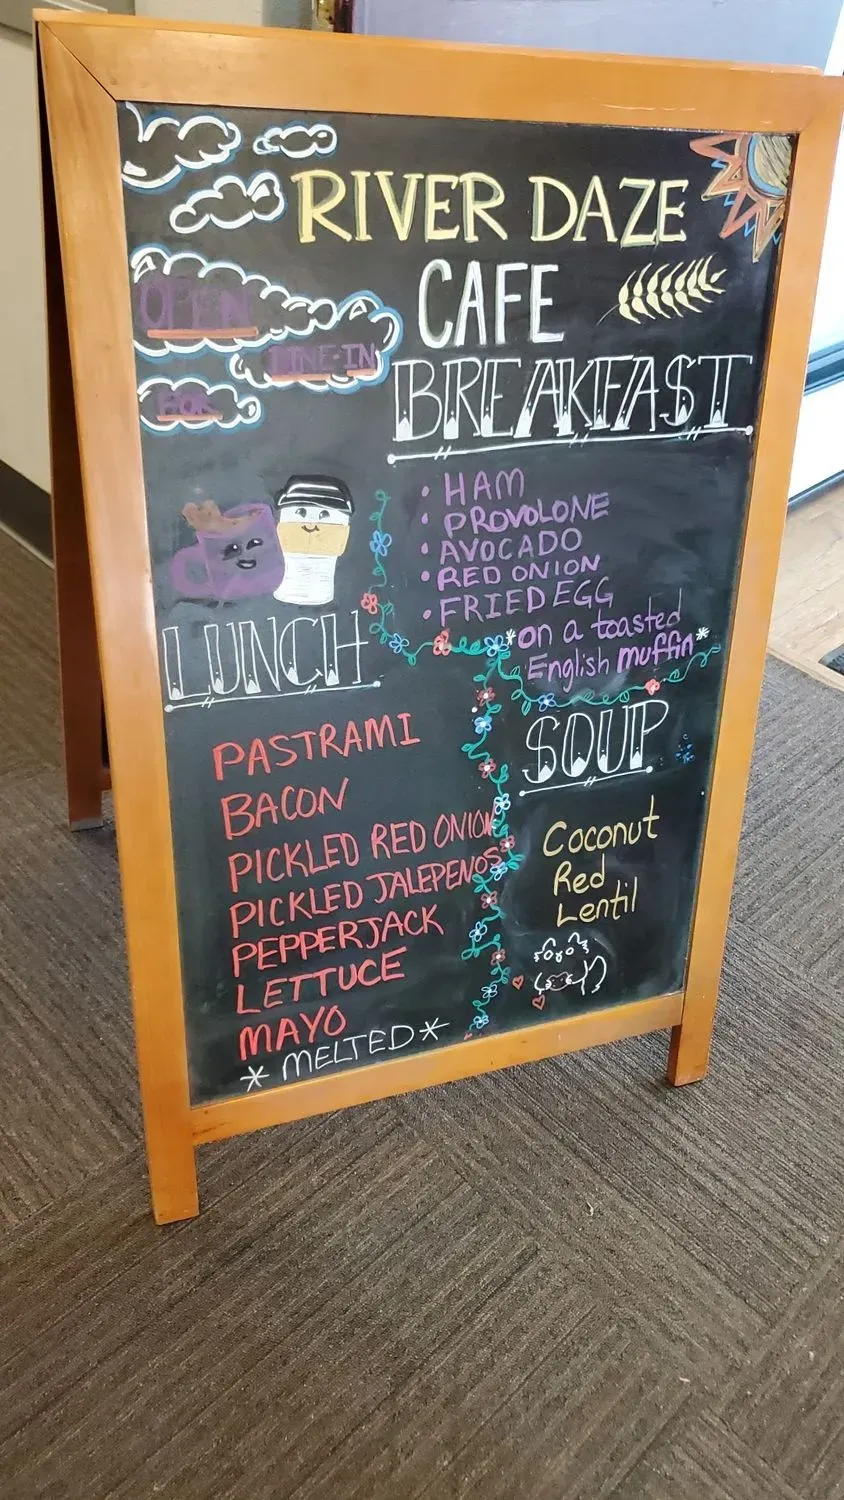 RIVER DAZE
CAFE
OPEN
DINE-IN
FOR
BREAKFAST
• HAM
• PROVOLONE
• AVOCADO
• RED ONION
• FRIED EGG
*on a toasted
English muffin*
LUNCH
PASTRAMI
BACON
PICKLED RED ONION
PICKLED JALEPENOS
PEPPERJACK
LETTUCE
MAYO
*MELTED*
SOUP
Coconut
Red
Lentil